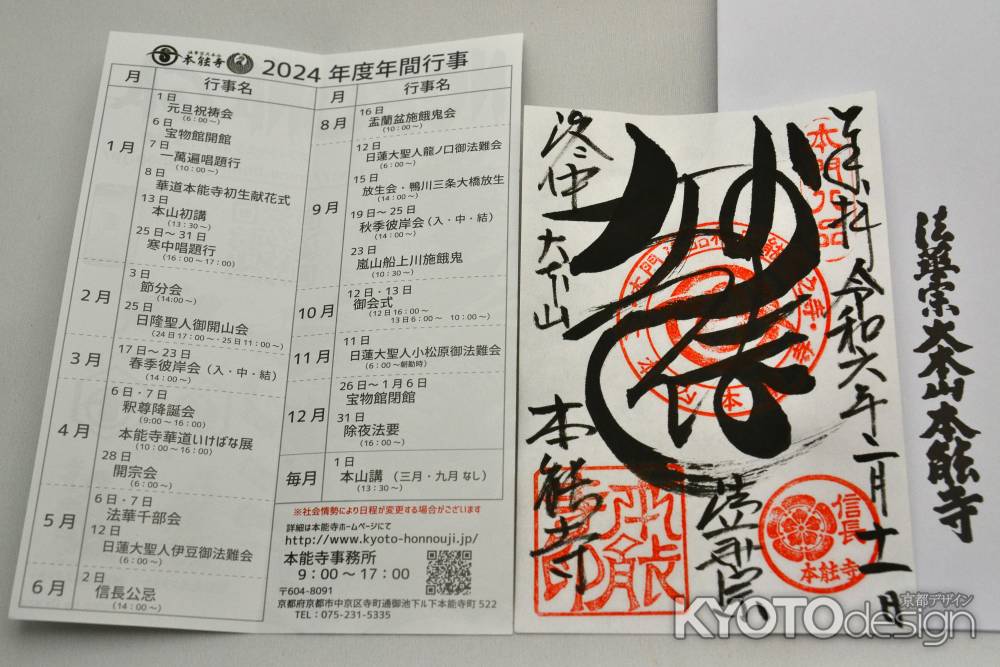 本能寺 2024 年度年間行事
月 行事名
1月
1日
元旦祝祷会
(6:00〜)
6日
宝物館開館
7日
一萬遍唱題行
(10:00〜)
8日
華道本能寺初生献花式
13日
本山初講
(13:30〜)
25日〜31日
寒中唱題行
(16:00〜17:00)
2月
3日
節分会
(14:00〜)
25日
日隆聖人御開山会
(24日17:00〜・25日11:00〜)
3月
17日〜23日
春季彼岸会(入・中・結)
(14:00〜)
4月
6日・7日
釈尊降誕会
(9:00〜16:00)
本能寺華道いけばな展
(10:00〜16:00)
28日
開宗会
(6:00〜)
5月
6日・7日
法華千部会
12日
日蓮大聖人伊豆御法難会
(6:00〜)
6月
2日
信長公忌
(14:00〜)
月 行事名
8月
16日
盂蘭盆施餓鬼会
(10:00〜)
9月
12日
日蓮大聖人龍ノ口御法難会
(6:00〜)
15日
放生会・鴨川三条大橋放生
(14:00〜)
19日〜25日
秋季彼岸会(入・中・結)
(14:00〜)
23日
嵐山船上川施餓鬼
(10:30〜)
10月
12日・13日
御会式
(12日16:00〜
13日6:00〜 10:00〜)
11月
11日
日蓮大聖人小松原御法難会
(6:00〜朝勤時)
12月
26日〜1月6日
宝物館閉館
31日
除夜法要
(16:00〜)
毎月
1日
本山講(三月・九月なし)
(13:30〜)
※社会情勢により日程が変更する場合がございます
詳細は本能寺ホームページにて
http://www.kyoto-honnouji.jp/
本能寺事務所
9:00〜17:00
〒604-8091
京都府京都市中京区寺町通御池下ル下本能寺町 522
TEL:075-231-5335
奉拝 令和六年二月十一日
洛中 大本山 本能寺
法華宗
信長
本能寺
法華宗大本山本能寺
京都デザイン
KYOTOdesign